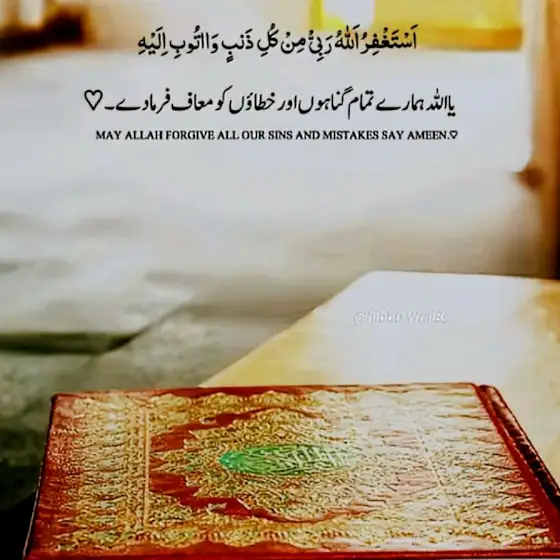 اَسْتَغْفِرُ اَللّٰهُ رَبِیْ مِنْ کُلِ ذَنبٍ وَااتُوبِ اِلَیْهِ
یااللہ ہمارے تمام گناہوں اور خطاؤں کو معاف فرمادے۔♡
MAY ALLAH FORGIVE ALL OUR SINS AND MISTAKES SAY AMEEN.♡